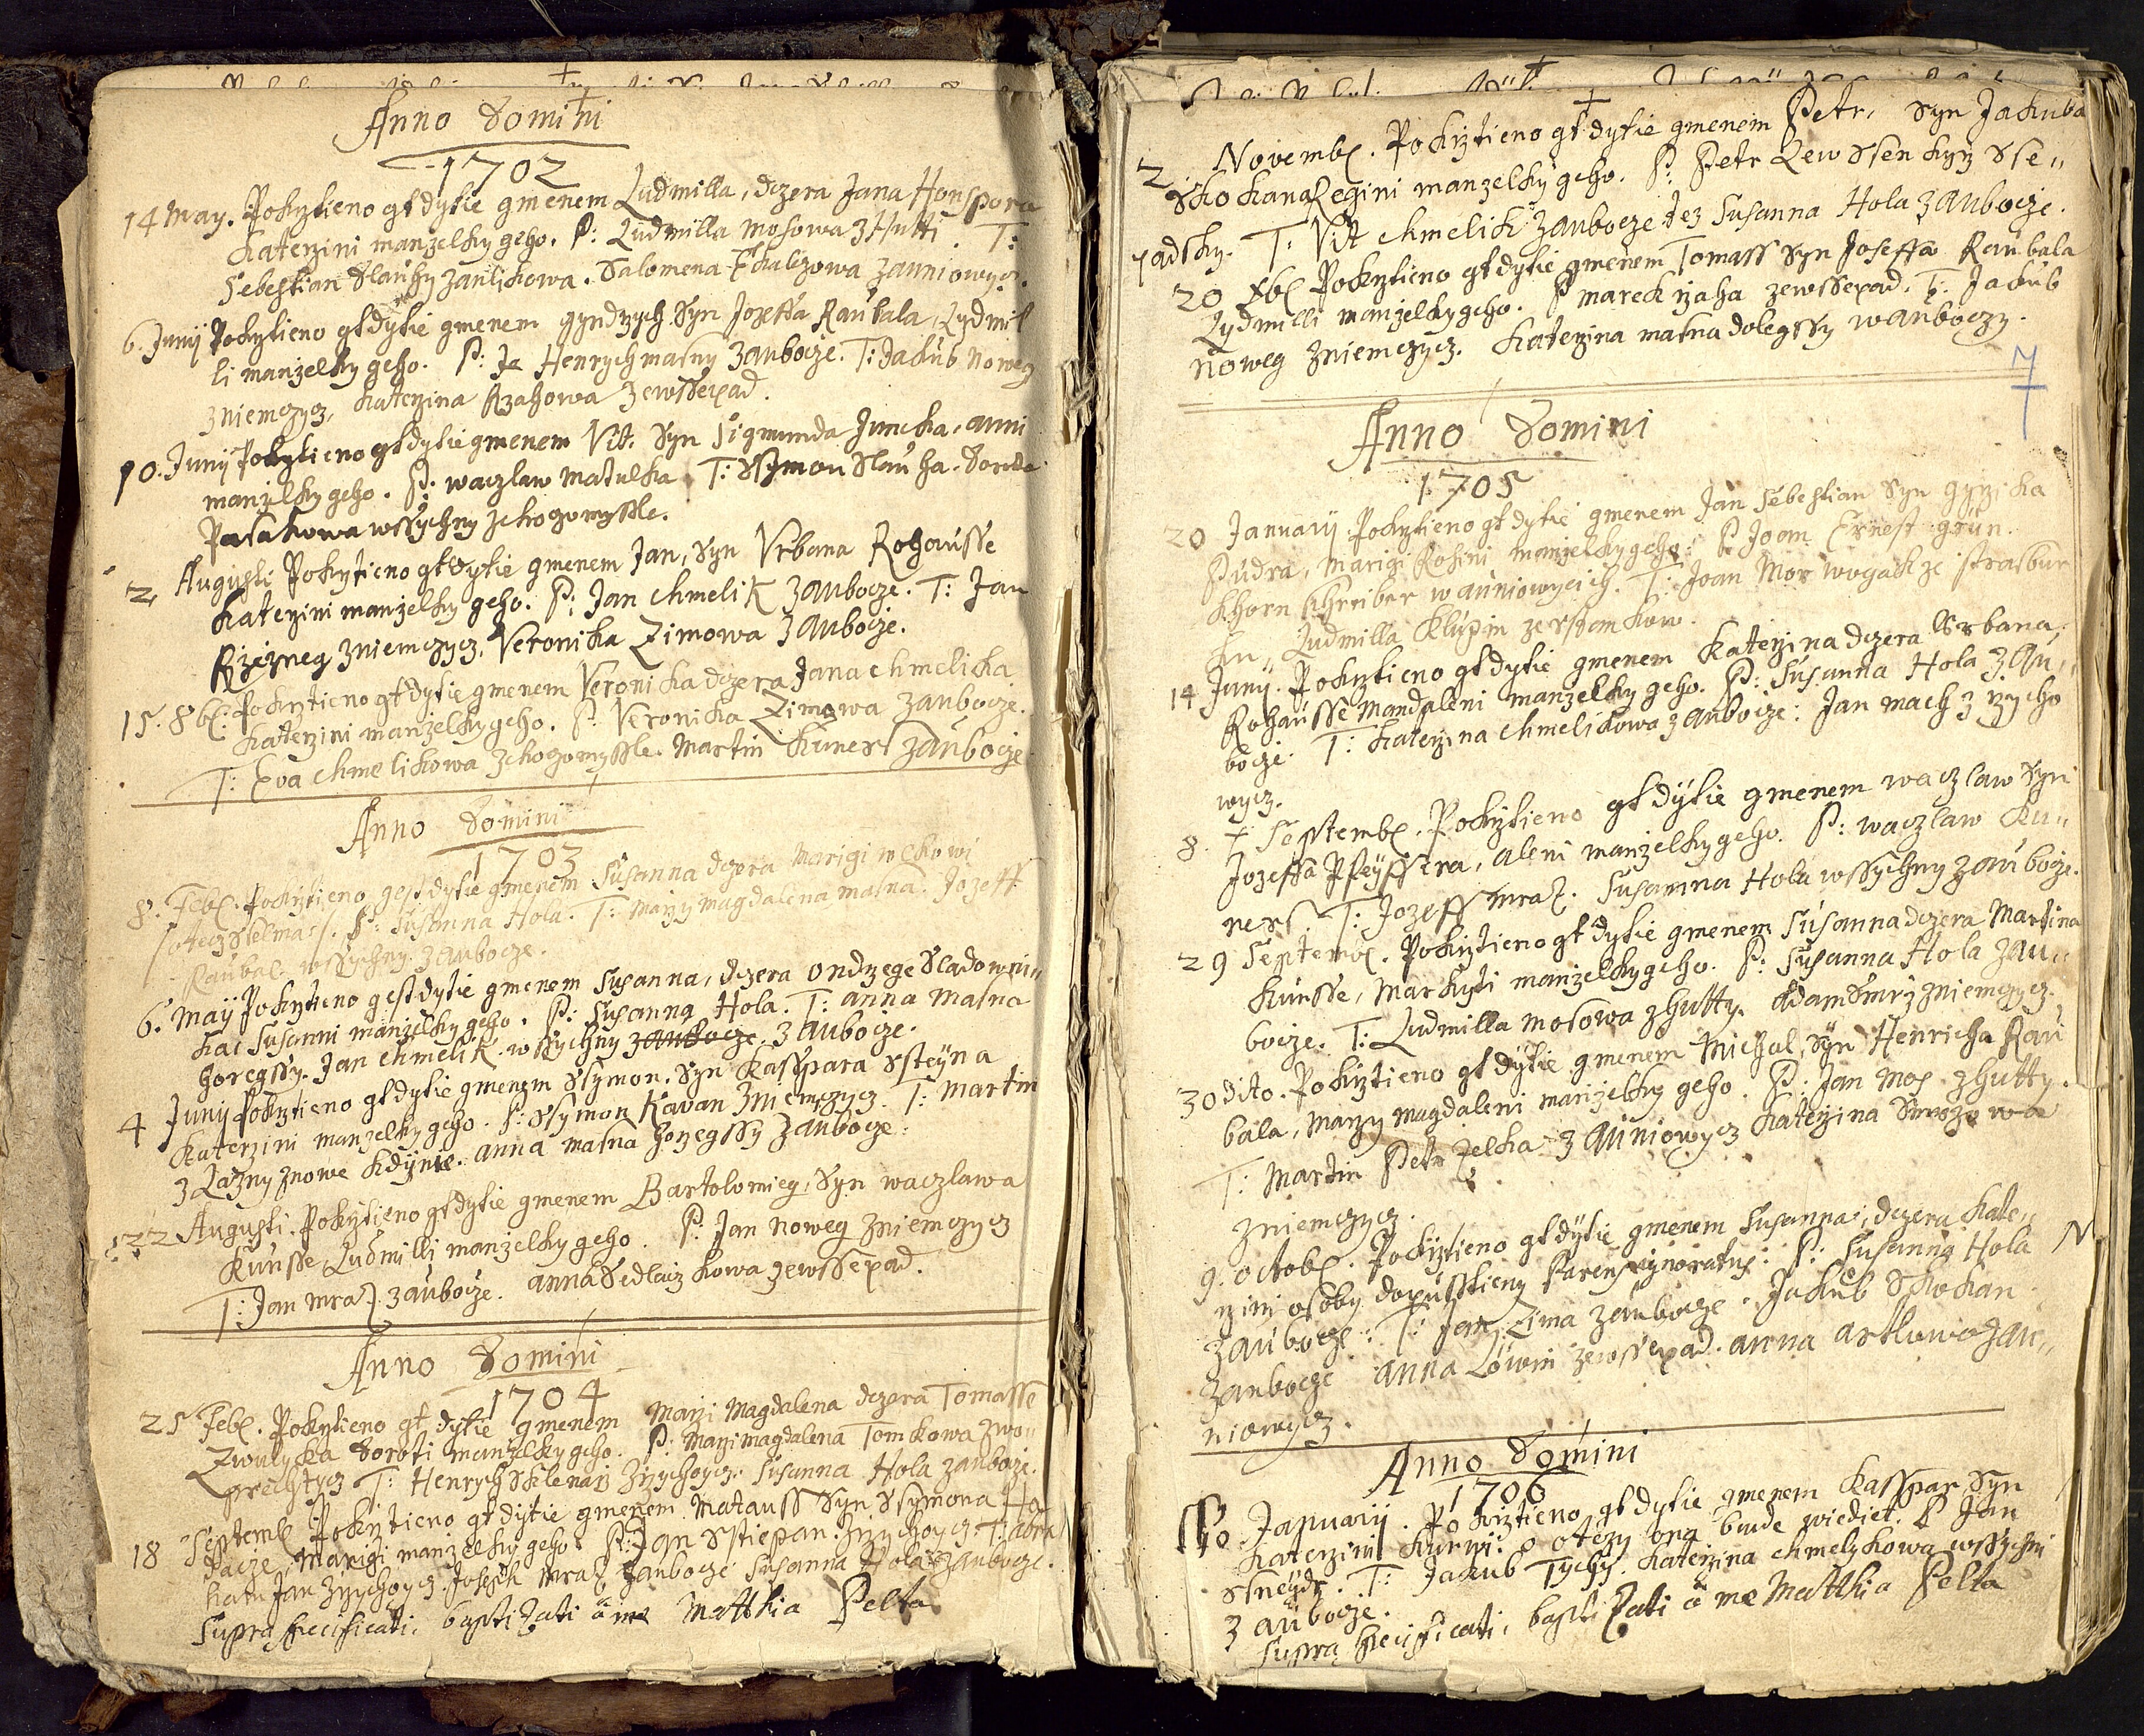 Anno Domini
1702
14 May. Pokrztieno gt dytie gmenem Ludmilla, dczera Jana Honspora
Katerzini manzelky geho. P: Ludmilla Mosowa z Hutti. T:
Sebestian Slauhy zanlikowa. Salomena zauniowycz.
6. Junij Pokrztieno gt dytie gmenem gyndrzych Syn Jozeffa Raubala, Lydmil
li manzelky geho. P: Henrych masny zaubocze. T: Jakub noweg
zniemczycz, Katerzina Rzahowa zewsserpad.
10. Junij Pokrztieno gt dytie gmenem Vit. Syn Sigmunda Juncka, anni
manzelky geho. P: waczlaw matulka T: Ssymon Slauha.
Pasakowa wssychny zchogomyssle.
2 Augusti Pokrztieno gt dytie gmenem Jan, Syn Vrbana Rohausse
Katerzini manzelky geho. P: Jan chmelik zaubocze. T: Jan
Rzezneg zniemczycz, Veronika Zimowa zaubocze.
15. 8b: Pokrztieno gt dytie gmenem Veronika dczera Jana chmelicka
Katerzini manzelky geho. P: Veronika Zimowa zaubocze.
T: Eva chmelikowa zchogomyssle. Martin Kuners zaubocze
Anno Domini
1703
8. Feb. Pokrztieno gest dytie gmenem Susanna dczera Marigi
P: Susanna Hola. T: Marzy magdalena masna. Jozeff
Raubal wssychny zaubocze.
6. Maij Pokrztieno gest dytie gmenem Susanna, dczera ondrzege Sladowni"
Susanni manzelky geho. P: Susanna Hola. T: anna masna
horegssy. Jan chmelik. wssychny zaubocze. zaubocze.
4 Junij Pokrztieno gt dytie gmenem Ssymon. Syn Kasspara Ssteyna
Katerzini manzelky geho. P: Ssymon Kavan zniemczycz. T: Martin
z Lazny znowe Kdynie. anna masna horzegssy zaubocze:
22 Augusti. Pokrztieno gt dytie gmenem Bartolomieg, Syn waczlawa
Kunsse Ludmilli manzelky geho. P: Jan noweg zniemczycz
T: Jan mraz. zaubocze. anna Sedlaczkowa zewssepad.
Anno Domini
1704
25 Feb. Pokrztieno gt dytie gmenem Marzi Magdalena dczera Tomasse
Doroti manzelky geho. P: Marzi magdalena Tomkowa zwo"
prechtycz T: Henrych Sklenarz zrzychoycz: Susanna Hola zaubocze.
18 Septemb Pokrztieno gt dytie gmenem Matauss Syn Ssymona Ho
Marigi manzelky geho. P: Jan Sstiepan zrzychoycz. T:
Jan zrzychoycz. Joseph mraz zaubocze Susanna Hola zaubocze.
Supra specificati: baptizati â me Matthia Pelta
2 Novemb. Pokrztieno gt dytie gmenem Petr, Syn Jakuba
Skokana Regini manzelky geho. P: Petr Lew Sse"
padsky. T: Vit chmelik zaubocze tez Susanna Hola zaubocze.
20 Xb Pokrztieno gt dytie gmenem Tomass Syn Joseffa Raubala
Lydmilli manzelky geho. P Marek rzaha zewssepad. T: Jakub
noweg zniemczycz. Katerzina masna dolegssy wauboczy.
7
Anno Domini
1705
20 Januarij Pokrztieno gt dytie gmenem Jan Sebestian Syn gyrzika
Pudra, Marigi Rosini manzelky geho. P Joam Ernest grün.
Khorn schreiber wauniowyciih. T: Joan Mor wogak ze strasbur
Ludmilla Klupin
14 Junij. Pokrztieno gt dytie gmenem Katerzina dczera Vrbana,
Rohausse Mandaleni manzelky geho. P: Susanna Hola zau"
bocze. T: Katerzina chmelikowa zaubocze: Jan mach z rzycho
wycz.
8. Septemb. Pokrztieno gt dytie gmenem waczlaw Syn
Jozeffa Pleyssera, aleni manzelky geho. P: waczlaw Ku"
ners. T: Jozeff mraz. Susanna Hola wssychny zaubocze.
29 Septemb. Pokrztieno gt dytie gmenem Susanna dczera Martina
Kunsse, Markyti manzelky geho. P: Susanna Hola zau"
bocze. T: Ludmilla Mosowa zhutty. Adam Smrz zniemczycz.
30 Dito. Pokrztieno gt dytie gmenem Michal, Syn Henricha Rau
bala, Marzy magdaleni manzelky geho. P: Jan Mos zhutty.
T: Martin Petrzelka zauniowycz Katerzina Smrzowa
zniemczycz.
9. Octob. Pokrztieno gt dytie gmenem Susanna, dczera Kate"
rzini osoby dopusstieny Parens ignoratus: P: Susanna Hola N
zaubocze: T: Jan Zima zaubocze. Jakub Skokan
zaubocze anna Löwin zewssepad. anna artlowa zau"
niowycz.
Anno Domini
1706
10. Januarij. Pokrztieno gt dytie gmenem Kasspar Syn
Katerzini Kurwi: o otczy ona bude wiediet. P Jan
Ssneydr. T: Jakub Tychy. Katerzina chmelykowa wssychni
zaubocze.
Supra specificati: baptizati â me Matthia Pelta